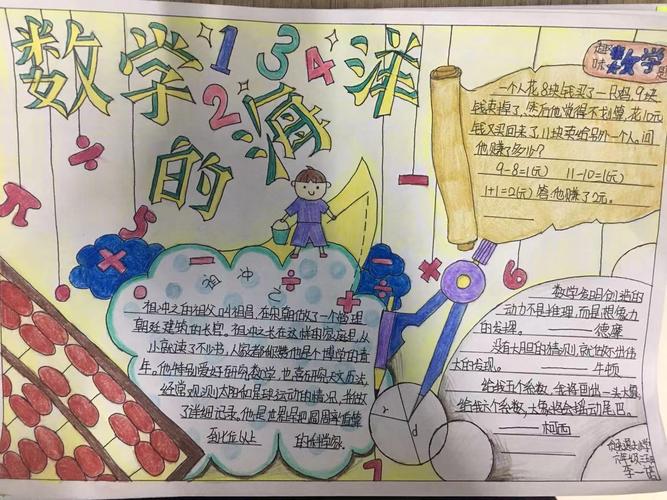 数学
的海洋
1 2 3 4
π
5
6
7
趣味数学
一个人花8块钱买了一只鸡,9块
钱卖掉了,然后他觉得不划算,花10元
钱又买回来了,11块卖给另一个人。问
他赚了多少?
9-8=1(元) 11-10=1(元)
1+1=2(元) 答:他赚了2元。
祖冲之
祖冲之的祖父叫祖昌,在宋朝做了一个管理
朝廷建筑的长官。祖冲之长在这样的家庭里,从
小就读了不少书,人家都称赞他是个博学的青
年。他特别爱好研究数学,也喜欢研究天文历法,
经常观测太阳和星球运动的情况,并做
了详细记录。他是世界早把圆周率推算
到七位以上的科学家。
r
d
数学发明创造的
动力不是推理,而是想象力
的发挥。——德摩
没有大胆的猜测,就做不出伟
大的发现。——牛顿
给我五个系数,我将画出一头大象,
给我六个系数,大象将会摇动尾巴。
——柯西
六年级三班
李一诺